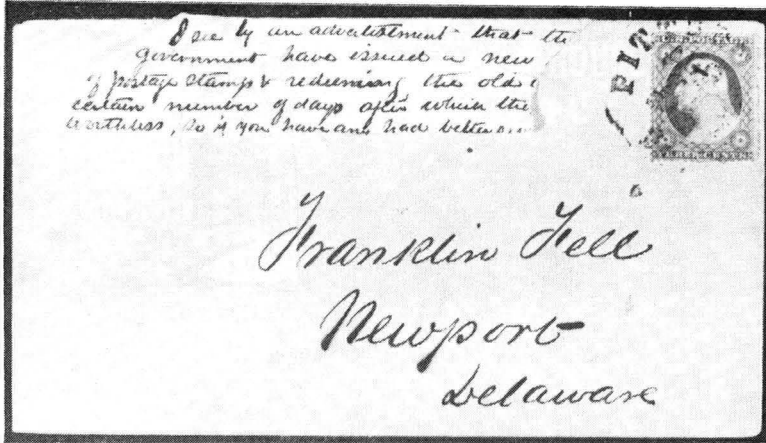 I see by an advertisement that the
government have issued a new
of postage stamps & redeeming the old
certain number of days after which the
worthless, so if you have any had better
PIT
THREE CENTS
Franklin Fell
Newport
Delaware